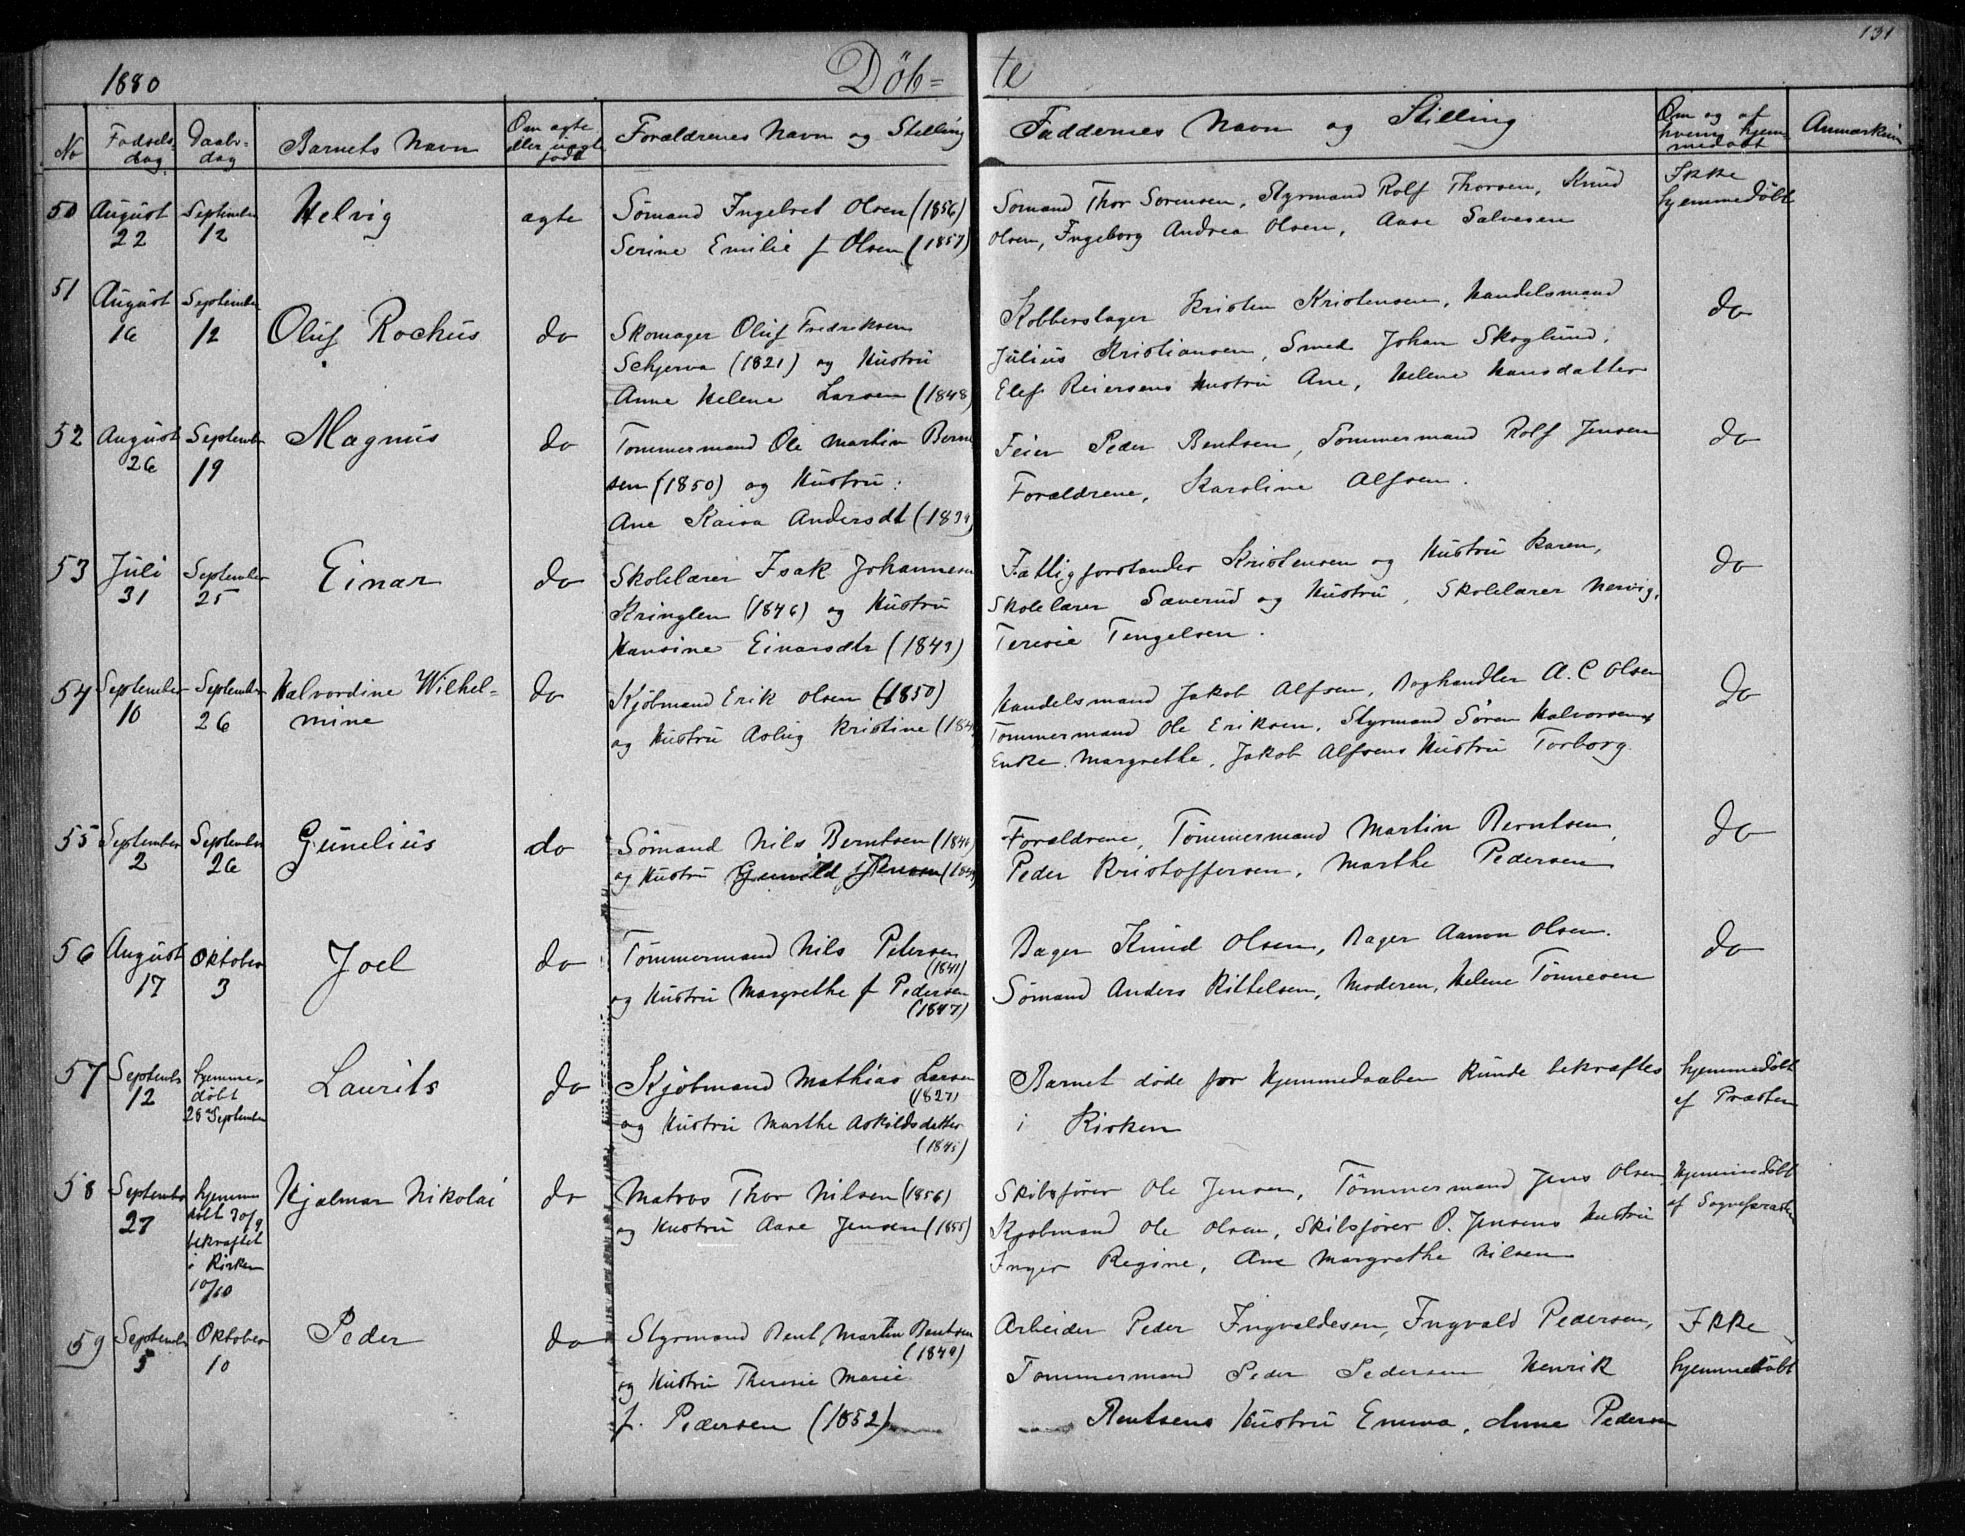 131
1880 Døb= te
No Fødselsdag Daabsdag Barnets Navn Om ægte eller uægte født Forældrenes Navn og Stilling Faddernes Navn og Stilling Om og af hvem hjemmedøbt Anmærkn
50 August 22 September 12 Helvig ægte
Sømand Ingebret Olsen (1856)
Serine Emilie f Olsen (1857)
Sømand Thor Sørensen, Styrmand Rolf Thorsen, Knud
Olsen, Ingeborg Andrea Olsen, Aase Salvesen
Ikke
hjemmedøbt
51 August 16 September 12 Oluf Rochus do
Skomager Oluf Fredriksen
Schjerva (1821) og Hustru
Anne Helene Larsen (1848)
Kobberslager Kristen Kristensen, Handelsmand
Julius Kristiansen, Smed Johan Skoglund,
Elef Reiersens Hustru Ane, Helene Hansdatter
do
52 August 26 September 19 Magnus do
Tømmermand Ole Martin Bernt
sen (1850) og Hustru:
Ane Kaisa Andersdt
Feier Peder Bentsen, Tømmermand Rolf Jensen
Forældrene, Karoline Alfsen.
do
53 Juli 31 September 25 Einar do
Skolelærer Isak Johannesen
Kringlen (1846) og Hustru
Hansine Einarsdtr (1849)
Fattigforstander Kristensen og Hustru Karen,
Skolelærer Sæverud og Hustru, Skolelærer Nervig,
Teresie Tengelsen.
do
54 September 10 September 26 Halvordine Wilhel-
mine do
Kjøbmand Erik Olsen (1850)
og Hustru Aslug Kristine (184
Handelsmand Jakob Alfsen, Boghandler A. C Olsen
Tømmermand Ole Eriksen, Styrmand Søren Halvorsens
Enke Margrethe, Jakob Alfsens Hustru Torborg.
do
55 September 2 September 26 Gunelius do
Sømand Nils Berntsen (1846)
og Hustru Gunild Jensen (184
Forældrene, Tømmermand Martin Berntsen,
Peder Kristoffersen, Marthe Pedersen
do
56 August 17 Oktober 3 Joel do
Tømmermand Nils Petersen
(1841)
og Hustru Margrethe f Pedersen
(1847)
Bager Knud Olsen, Bager Aanon Olsen.
Sømand Anders Kittelsen, Moderen, Helene Tønnesen
do
57 Septemb 12 hjemme-
døbt
28 September Laurits do
Kjøbmand Mathias Larsen
(1827)
og Hustru Marthe Askildsdatter
(1845)
Barnet døde før Hjemmedaaben kunde bekræftes
i Kirken
hjemmedøbt
af Præsten
58 September 27 hjemme
døbt 30/9
bekræftet
i Kirken
10/10 Hjalmar Nikolai do
Matros Thor Nilsen (1856)
og Hustru Aase Jensen (1855)
Skibsfører Ole Jensen, Tømmermand Jens Olsen
Kjøbmand Ole Olsen, Skibsfører O. Jensens Hustru
Inger Regine, Ane Margrethe Nilsen
Hjemmedøbt
af Sognepræsten
59 September 5 Oktober 10 Peder do
Styrmand Bent Martin Bentsen
(1849)
og Hustru Theresie Marie
f. Pedersen (1852)
Arbeider Peder Ingvaldesen, Ingvald Pedersen,
Tømmermand Peder Pedersen Henrik
Bentsens Hustru Emma, Anne Pedersen
Ikke
hjemmedøbt